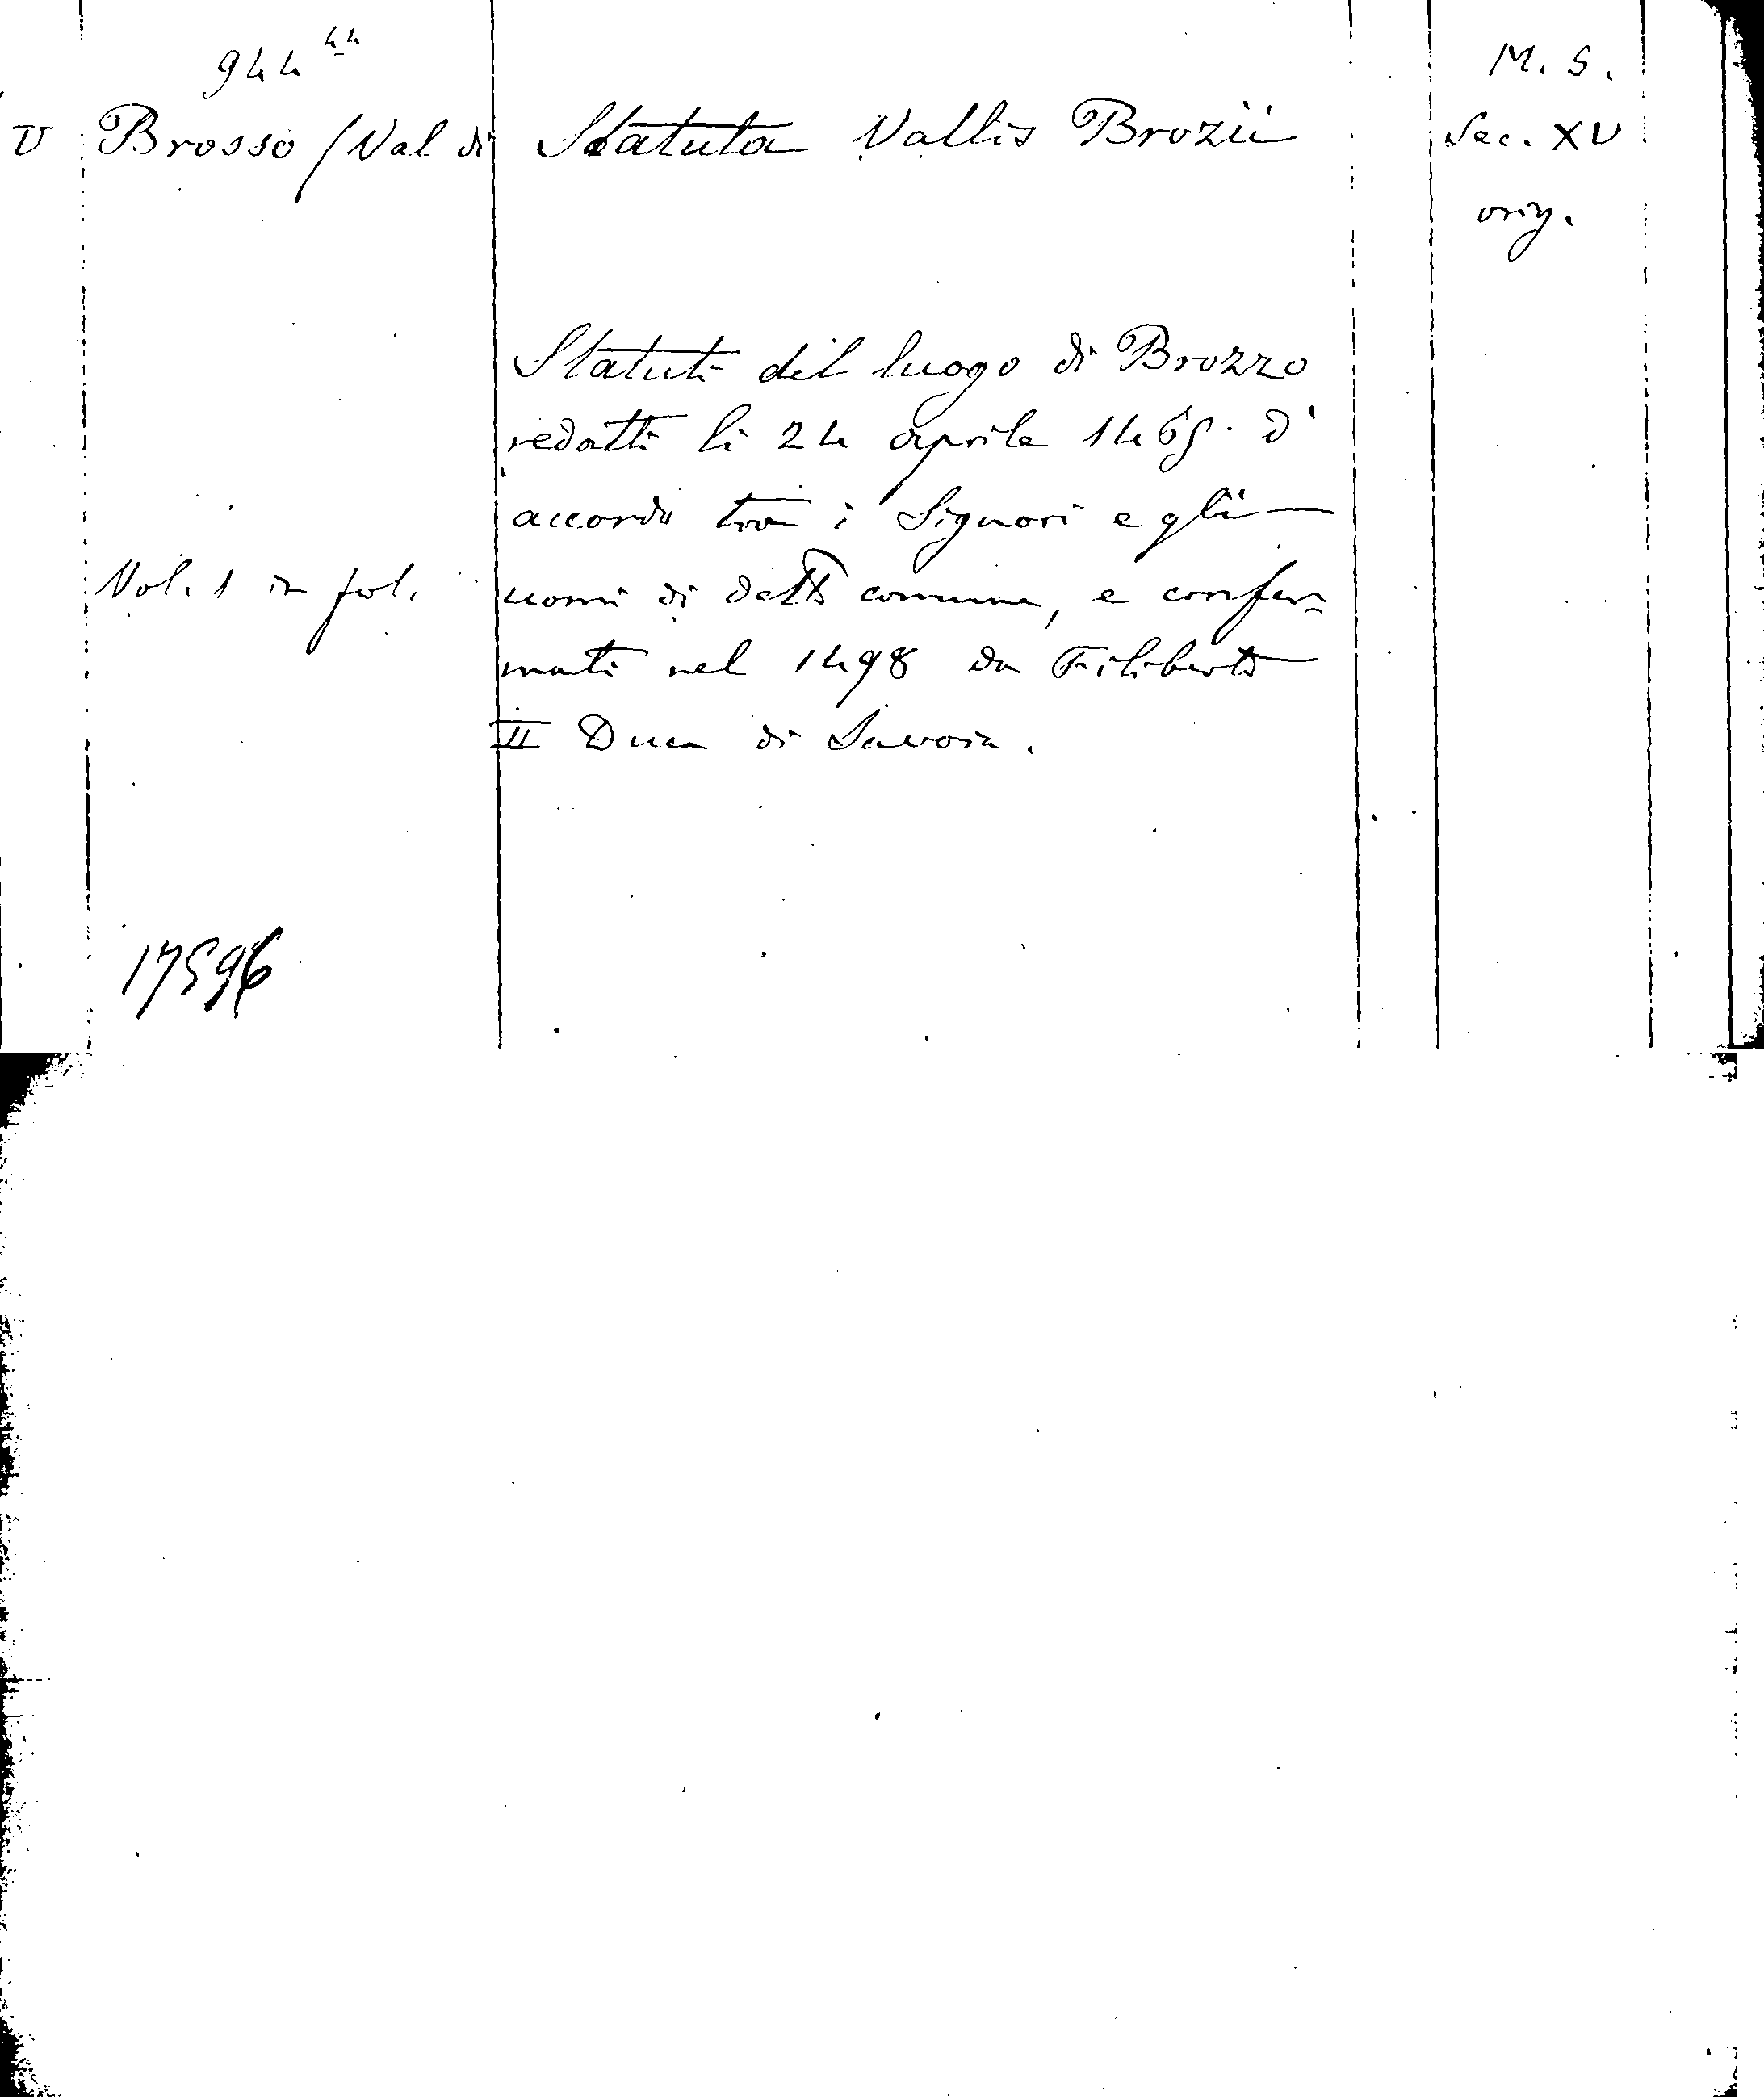 944 44
M. S.
V Brosso (Val di Statuta Vallis Brozii Sec. XV
orig.
Statuti del luogo di Brozzo
redatti li 24 aprile 1465. d'
accordo tra i Signori e gli
Vol. 1 in fol. uomi di detto comune, e confer=
mati nel 1498 da Filiberto
II Duca di Savoia.
17596